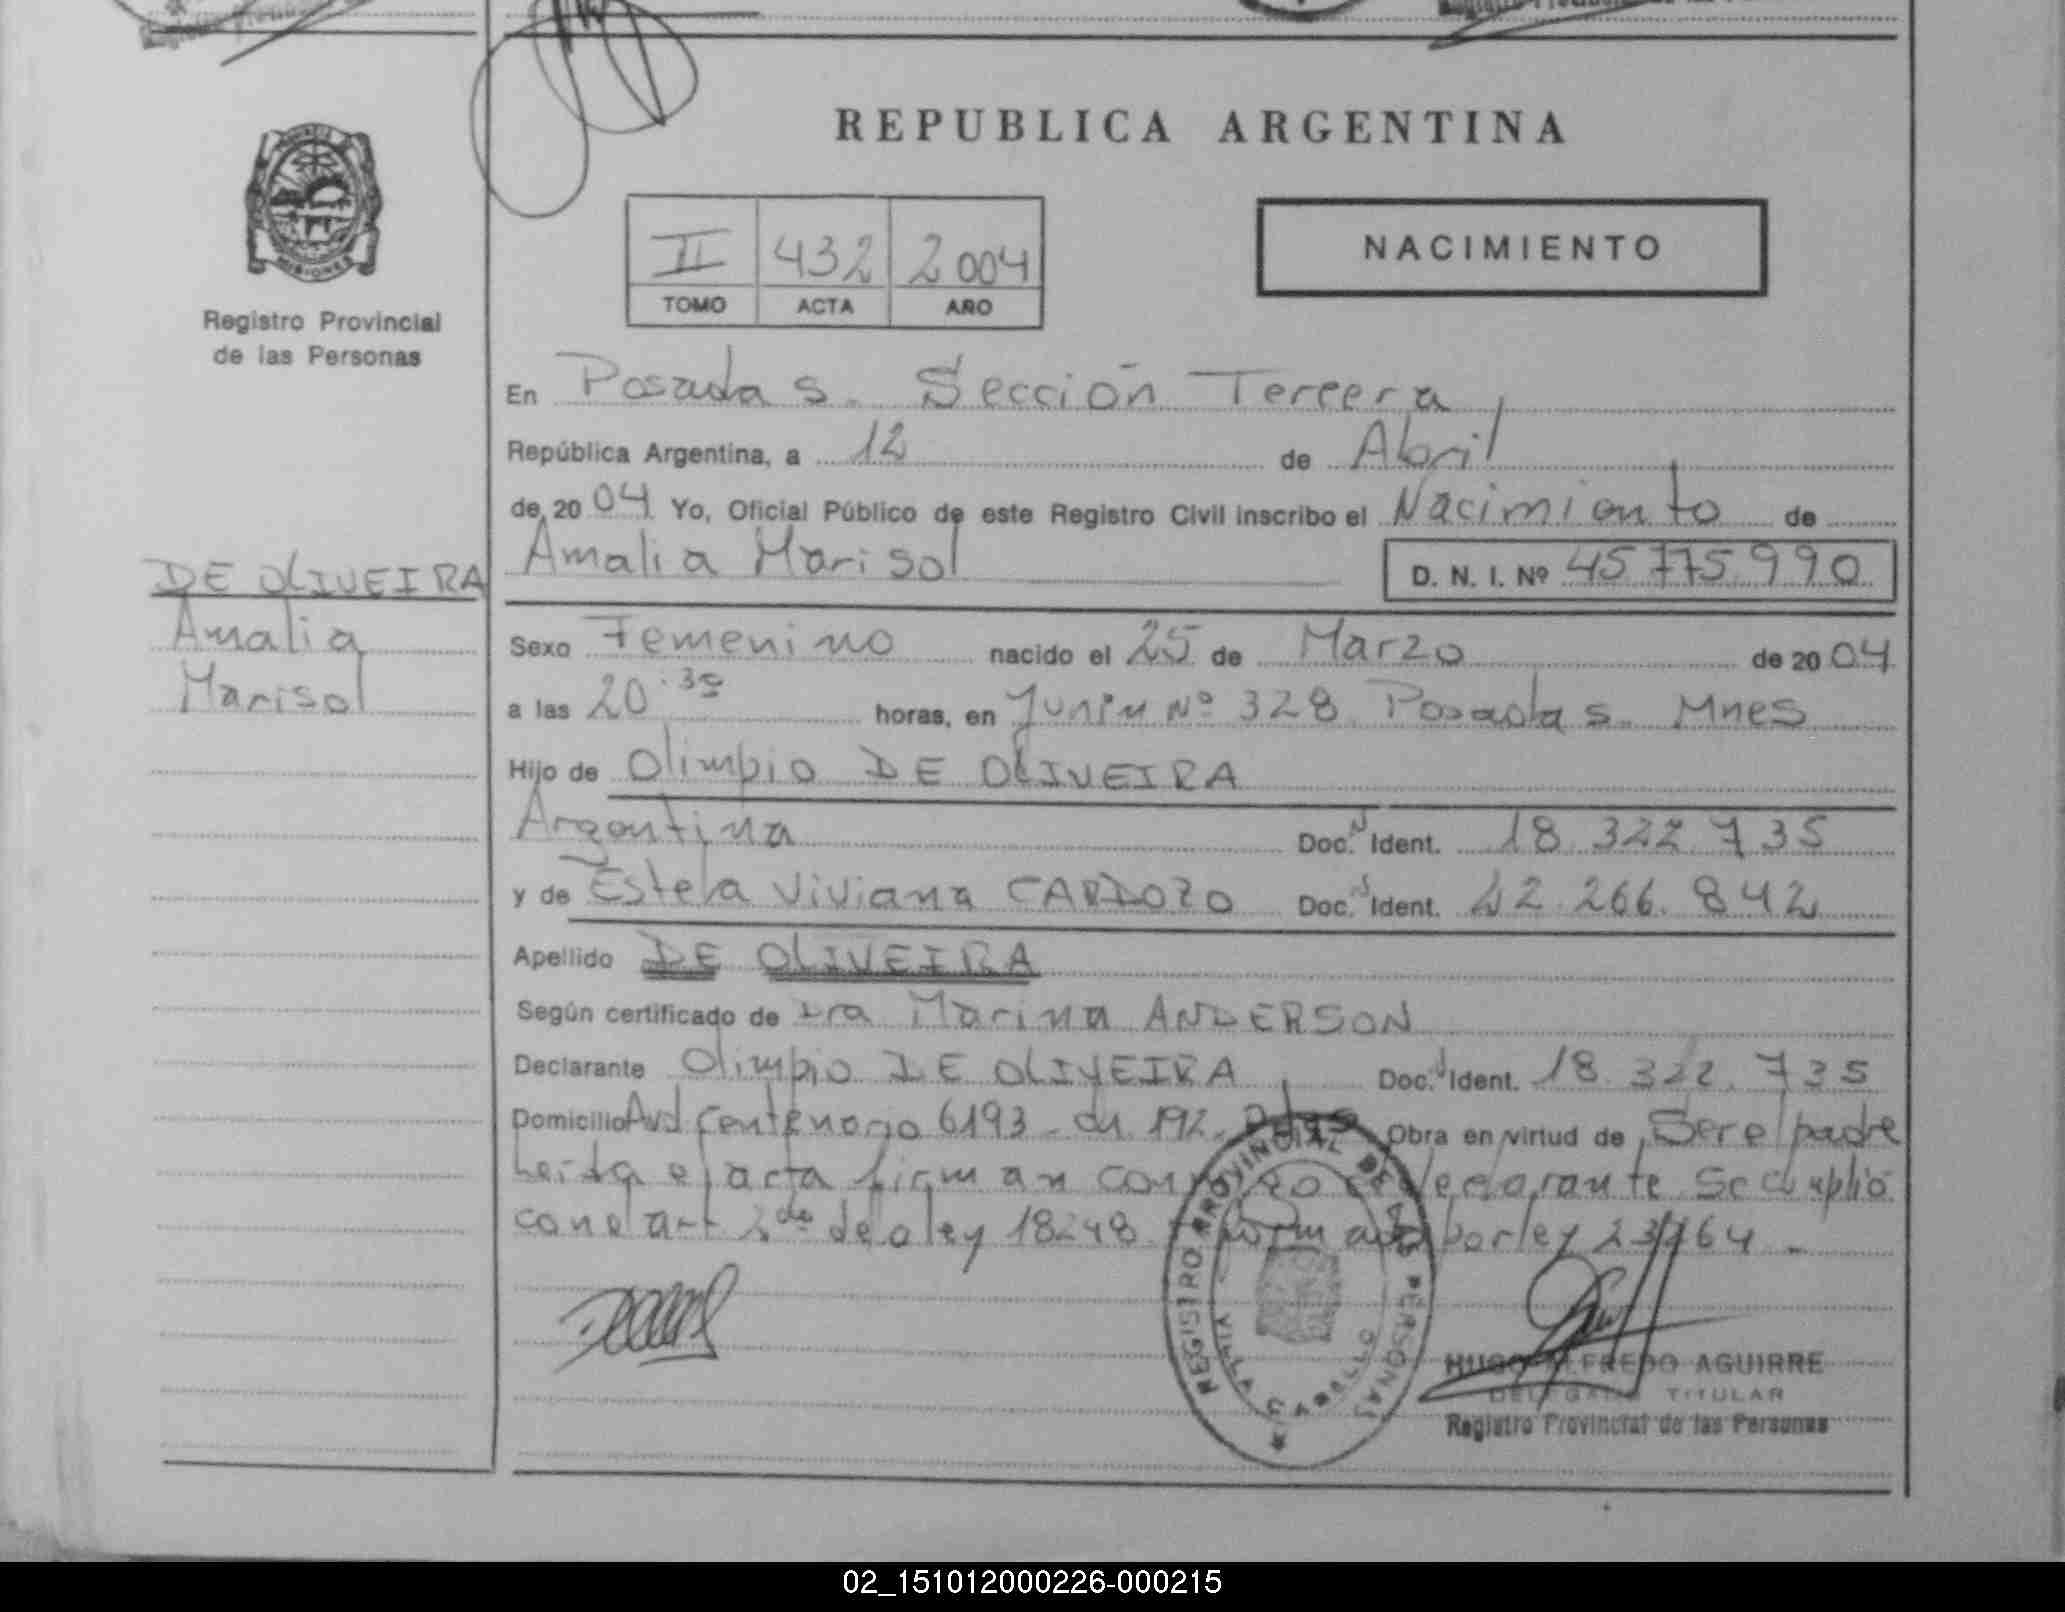 REPUBLICA ARGENTINA
MISIONES
Registro Provincial
de las Personas
II 432 2004
TOMO ACTA AÑO
NACIMIENTO
En Posadas. Sección Tercera,
República Argentina, a 12 de Abril
de 2004 Yo, Oficial Público de este Registro Civil inscribo el Nacimiento de
Amalia Marisol D. N. I. Nº 45 775 990
DE OLIVEIRA
Amalia
Marisol
Sexo Femenino nacido el 25 de Marzo de 2004
a las 20.30 horas, en Junin Nº 328 Posadas. Mnes
Hijo de Olimpio DE OLIVEIRA
Argentina Doc. Ident. 18.322.735
y de Estela Viviana CARDOZO Doc. Ident. 266.842
Apellido DE OLIVEIRA
Según certificado de Dra Marina ANDERSON
Declarante Olimpio DE OLIVEIRA Doc. Ident. 18.322.735
Domicilio Avd. Centenario 6193 - ch. 192. Pdas Obra en virtud de Ser el padre
Leida el acta firman conmigo el declarante Se cumplió
con el art 2do de la ley 18248. por ley
REGISTRO PROVINCIAL DE LAS PERSONAS
VILLA CABELLO
HUGO ALFREDO AGUIRRE
DELEGADO TITULAR
Registro Provincial de las Personas
02_151012000226-000215